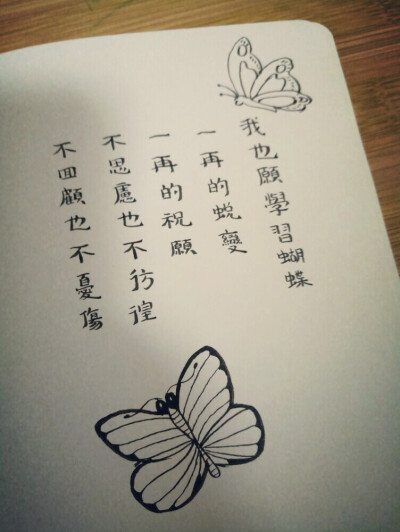 我也願學習蝴蝶
一再的蛻變
一再的祝願
不思慮也不彷徨
不回顧也不憂傷